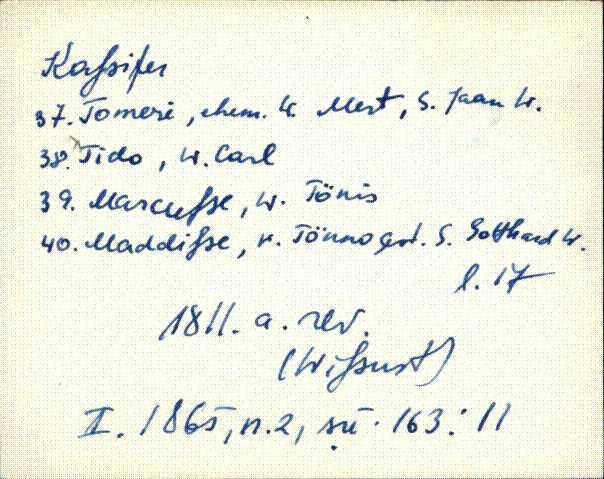 Kaſsifer
37. Tomeri, ehem. W. Mert, S. Jaan W.
38. Tido, W. Carl
39. Marcuſse, W. Tönis
40. Maddiſse, v. Tönno gest. S. Gotthard W.
l. 17
1811. a. rev.
(Wiſsust)
II. 1865, n. 2, sü. 163:11